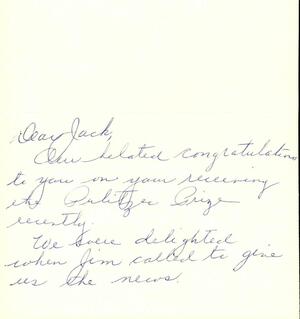 Dear Jack,
Our belated congratulations
to you on your receiving
the Pulitzer Prize
recently.
We were delighted
when Jim called to give
us the news.